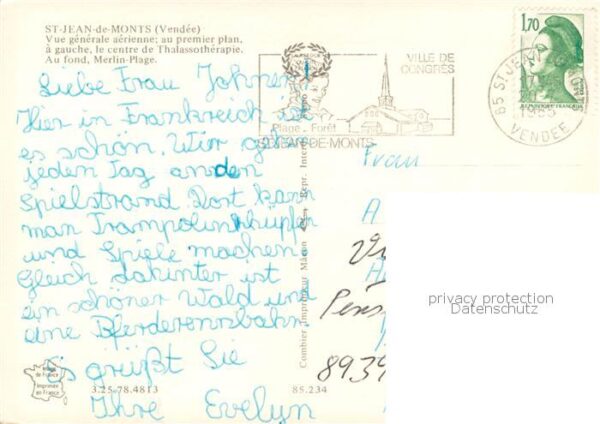 ST-JEAN-de-MONTS (Vendée)
Vue générale aérienne; au premier plan,
à gauche, le centre de Thalassothérapie.
Au fond, Merlin-Plage.
Liebe Frau Johnen
Hier in Frankreich ist
es schön. Wir gehen
jeden Tag an den
Spielstrand. Dort kann
man Trampolinhüpfen
und Spiele machen.
Gleich dahinter ist
ein schöner Wald und
eine Pferderennbahn.
Es grüßt Sie
Ihre Evelyn
Combier Imprimeur Mâcon
Repr. Interd.
3.25.78.4813
85.234
Imprimée
en France
VILLE DE
CONGRÈS
Plage - Forêt
ST JEAN-DE-MONTS
85 ST JEAN
VENDEE
1,70
REPUBLIQUE FRANÇAISE
Frau
A
Pens
8939
privacy protection
Datenschutz